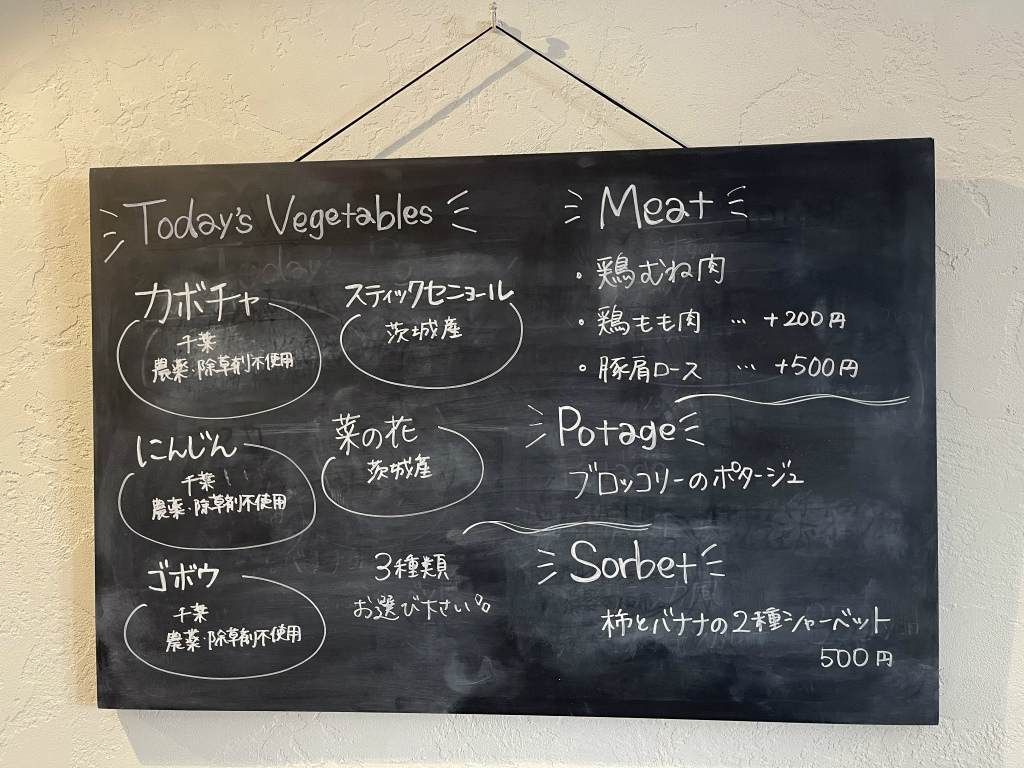 Today's Vegetables
カボチャ
千葉
農薬・除草剤不使用
スティックセニョール
茨城産
にんじん
千葉
農薬・除草剤不使用
菜の花
茨城産
ゴボウ
千葉
農薬・除草剤不使用
3種類
お選び下さい
Meat
・鶏むね肉
・鶏もも肉 … +200円
・豚肩ロース … +500円
Potage
ブロッコリーのポタージュ
Sorbet
柿とバナナの2種シャーベット
500円